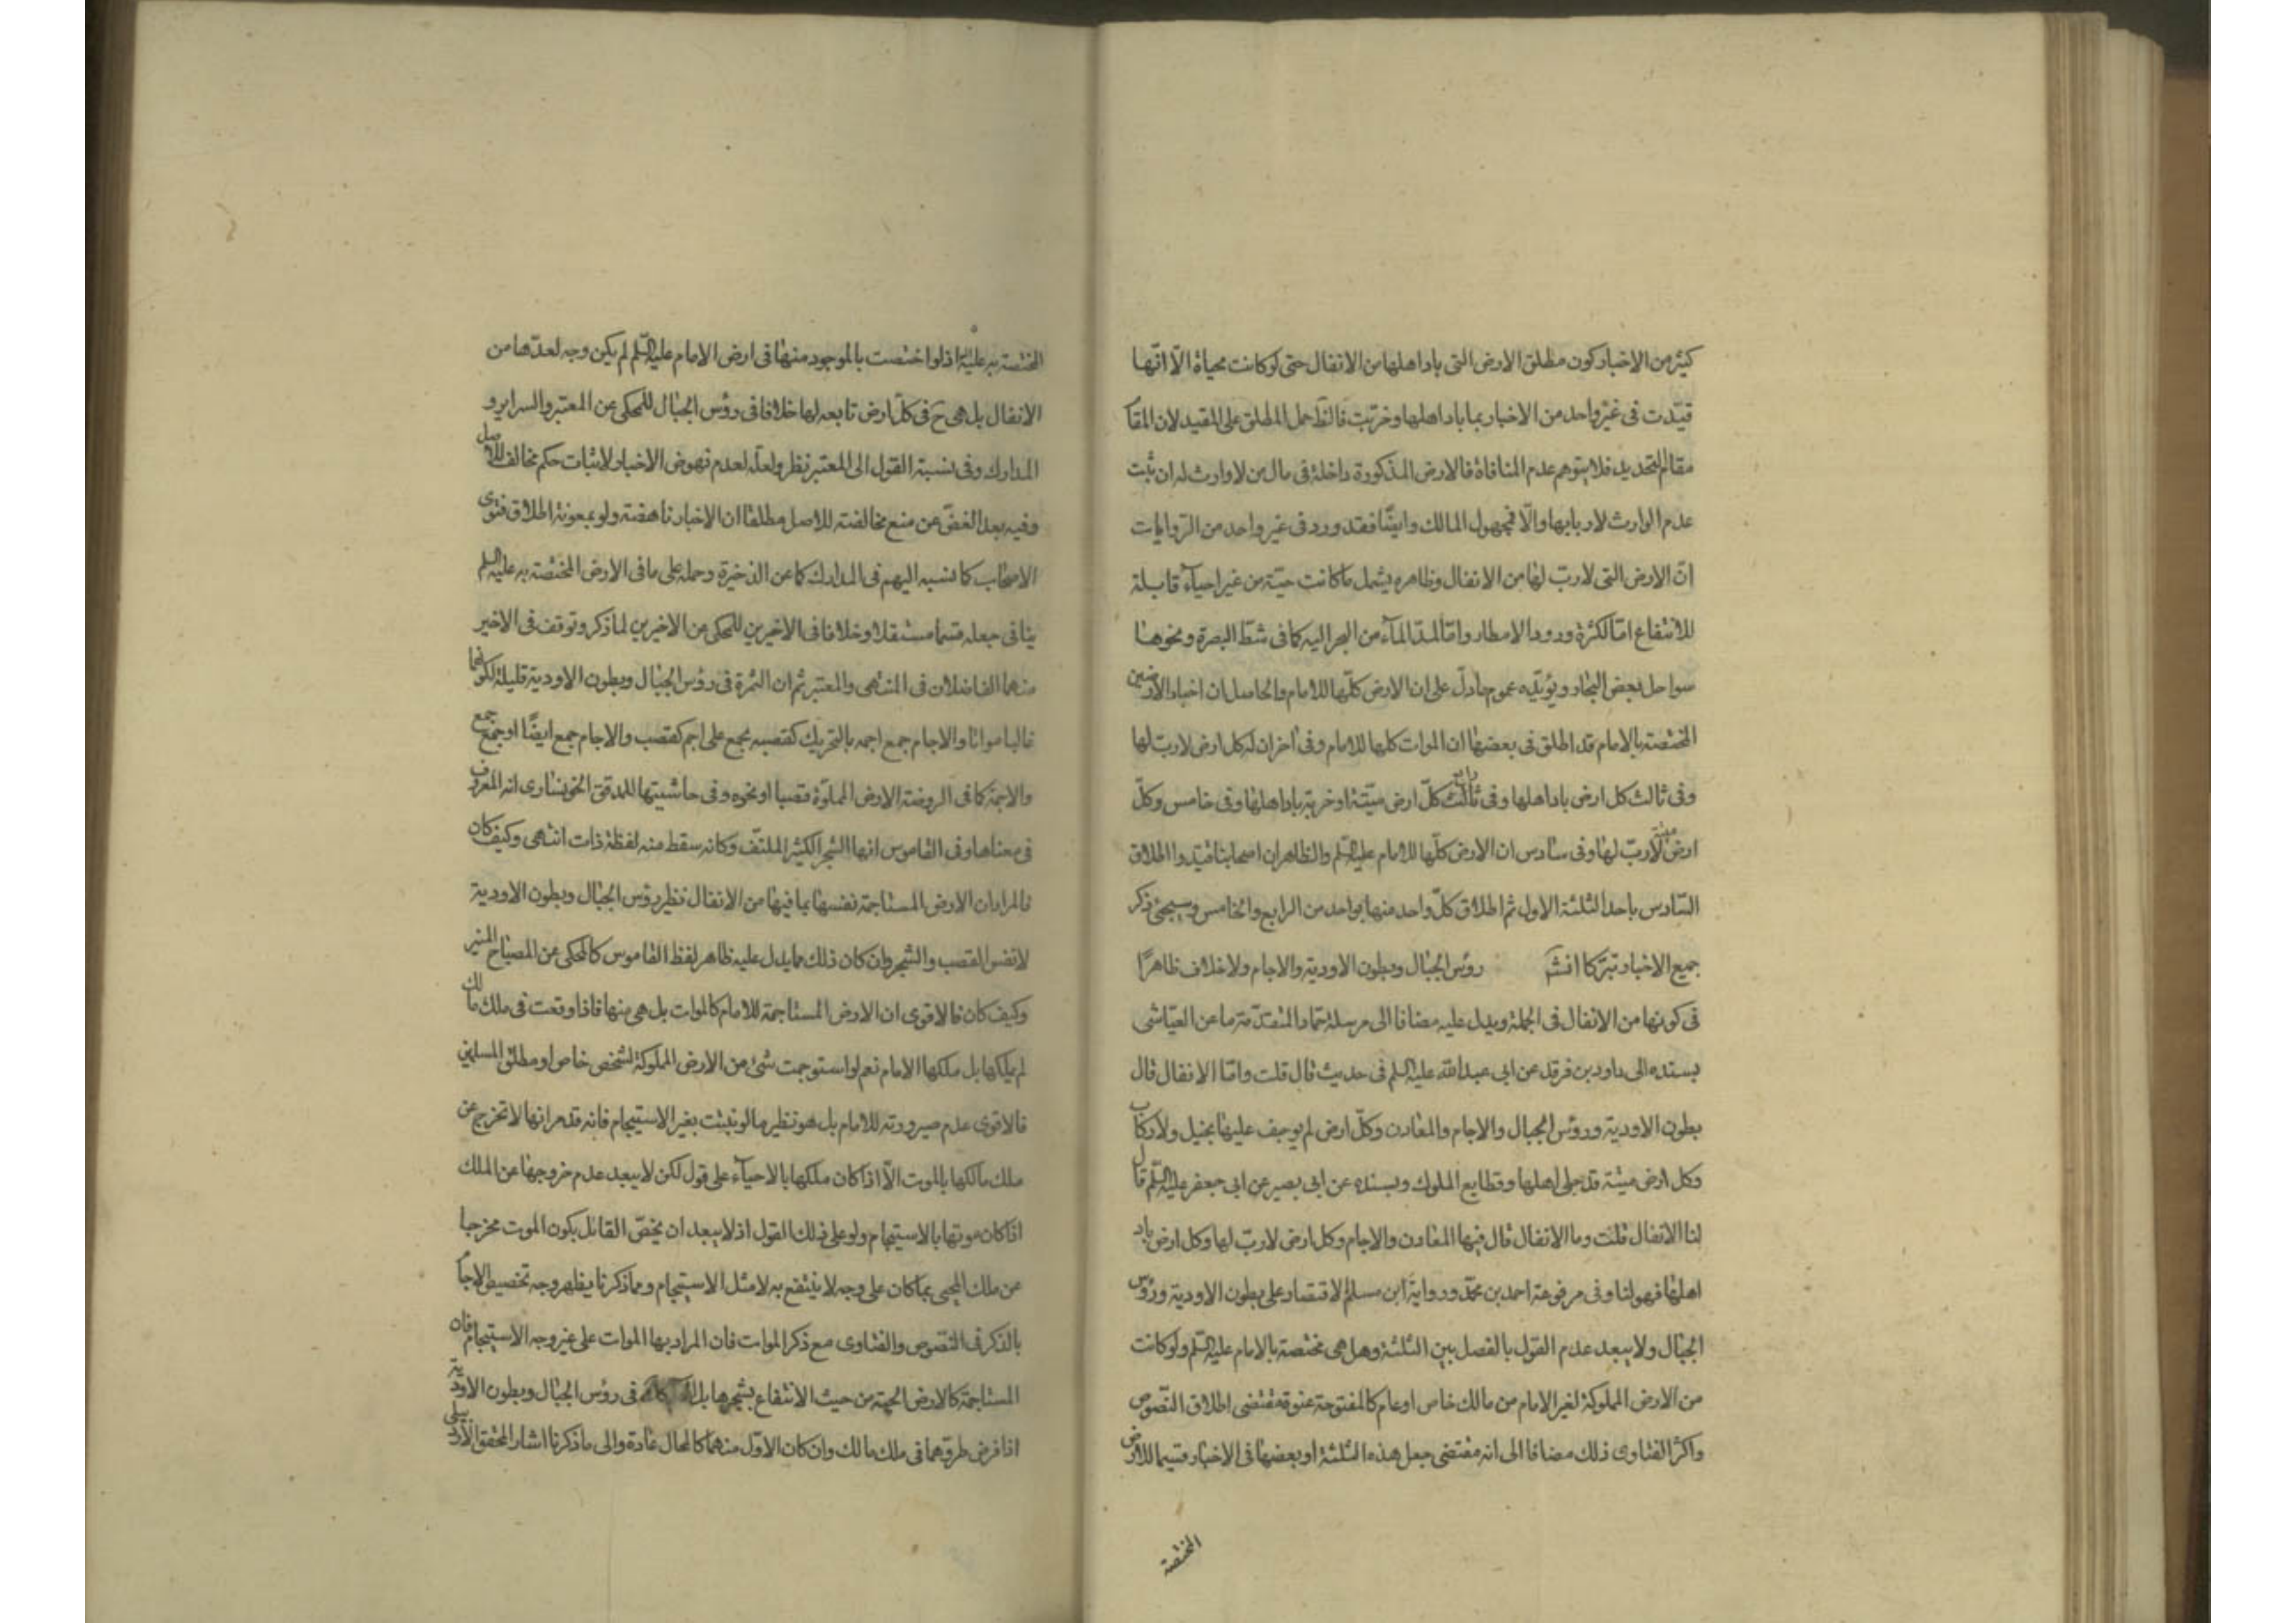 كثير من الاخبار كون مطلق الارض التى باد اهلها من الانفال حتى لو كانت محياة الّا انّها
قيّدت فى غير واحد من الاخبار بما باد اهلها وخربت فالظ حمل المطلق على المقيد لان المقا
مقام التحديد فلا يتوهم عدم المنافاة فالارض المذكورة داخلة فى مال من لا وارث له ان ثبت
عدم الوارث لاربابها والّا فمجهول المالك وايضًا فقد ورد فى غير واحد من الرّوايات
انّ الارض التى لا ربّ لها من الانفال وظاهره يشمل ما كانت حيّة من غير احيآء قابلة
للانتفاع امّا لكثرة ورود الامطار وامّا لمدّ المآء من البحر اليه كما فى شطّ البصرة ونحوها
سواحل بعض البحار ويؤيّده عموم ما دلّ على ان الارض كلّها للامام والحاصل ان اخبار الارضين
المختصة بالامام قد اطلق فى بعضها ان الموات كلها للامام وفى اخر ان له كل ارض لا ربّ لها
وفى ثالث كل ارض باد اهلها وفى رابع كلّ ارض ميّتة او خربة باد اهلها وفى خامس وكلّ
ارض ميتة لا ربّ لها وفى سادس ان الارض كلّها للامام عليه السّلم والظاهر ان اصحابنا قيّدوا اطلاق
السّادس باحد الثلثة الاول ثم اطلاق كلّ واحد منها بواحد من الرابع والخامس وسيجئ ذكر
جميع الاخبار تبرّكا انشآ رؤس الجبال وبطون الاودية والاجام ولا خلاف ظاهرًا
فى كونها من الانفال فى الجملة ويدل عليه مضافا الى مرسلة حمّاد المتقدّمة ما عن العيّاشى
بسنده الى داود بن فرقد عن ابى عبد الله عليه السلم فى حديث قال قلت وامّا الانفال قال
بطون الاودية ورؤس الجبال والاجام والمعادن وكلّ ارض لم يوجف عليها بخيل ولا ركاب
وكل ارض ميتة قد جلى اهلها وقطايع الملوك وبسنده عن ابى بصير عن ابى جعفر عليه السّلم قال
لنا الانفال قلت وما الانفال قال فيها المعادن والاجام وكل ارض لا ربّ لها وكل ارض باد
اهلها فهو لنا وفى مرفوعة احمد بن محمّد ورواية ابن مسلم الاقتصار على بطون الاودية ورؤس
الجبال ولا يبعد عدم القول بالفصل بين الثلثة وهل هى مختصة بالامام عليه السّلم ولو كانت
من الارض المملوكة لغير الامام من مالك خاص او عام كالمفتوحة عنوة مقتضى اطلاق النّصوص
واكثر الفتاوى ذلك مضافا الى انه مقتضى جعل هذه الثلثة او بعضها فى الاخبار قسيما للارض
المختصة
المختصة به عليه اذ لو اختصت بالموجود منها فى ارض الامام عليه السّلم لم يكن وجه لعدّها من
الانفال بل هى ح فى كلّ ارض تابعه لها خلافا فى رؤس الجبال للمحكى عن المعتبر والسراير و
المدارك وفى نسبة القول الى المعتبر نظر ولعلّه لعدم نهوض الاخبار لاثبات حكم مخالف للاصل
وفيه بعد الغضّ عن منع مخالفته للاصل مطلقا ان الاخبار ناهضة ولو بمعونة اطلاق فتوى
الاصحاب كما نسبه اليهم فى المدارك كما عن الذخيرة وحمله على ما فى الارض المختصة به عليه السلم
ينافى جعله قسما مستقلا وخلافا فى الاخيرين للمحكى عن الاخيرين لما ذكر وتوقف فى الاخير
منهما الفاضلان فى المنتهى والمعتبر ثم ان الثمرة فى رؤس الجبال وبطون الاودية قليلة لكونهما
غالبا مواتا والاجام جمع اجمه بالتحريك كقصبه يجمع على اجم كقصب والاجام جمع ايضًا او جمع جمع
والاجمة كما فى الروضة الارض المملوّة قصبا او نحوه وفى حاشيتها للمدقق الخونسارى انه المعروف
فى معناها وفى القاموس انها الشجر الكثير الملتفّ وكانه سقط منه لفظة ذات انتهى وكيف كان
فالمراد ان الارض المستاجمة نفسها بما فيها من الانفال نظير رؤس الجبال وبطون الاودية
لا نفس القصب والشجر وان كان ذلك مما يدل عليه ظاهر لفظ القاموس كالمحكى عن المصباح المنير
وكيف كان فالاقوى ان الارض المستاجمة للامام كالموات بل هى منها فاذا وقعت فى ملك مالك
لم يملكها بل ملكها الامام نعم لو استوجمت شئ من الارض المملوكة لشخص خاص او مطلق المسلمين
فالاقوى عدم صيرورته للامام بل هو نظير ما لو تبثت بغير الاستيجام فانه قد مر انها لا تخرج عن
ملك مالكها بالموت الّا اذا كان ملكها بالاحيآء على قول لكن لا يبعد عدم خروجها عن الملك
اذا كان موتها بالاستيجام ولو على ذلك القول اذ لا يبعد ان يخصّ القائل بكون الموت مخرجا
عن ملك المحيى بما كان على وجه لا ينتفع به لا مثل الاستيجام ومما ذكرنا يظهر وجه تخصيص الاجام
بالذكر فى النّصوص والفتاوى مع ذكر الموات فان المراد بها الموات على غير وجه الاستيجام فان
المستاجمة كالارض الحية من حيث الانتفاع بشجرها بل فى رؤس الجبال وبطون الاودية
اذا فرض طروّهما فى ملك مالك وان كان الاوّل منهما كالمحال عادة والى ما ذكرنا اشار المحقق الاردبيلى